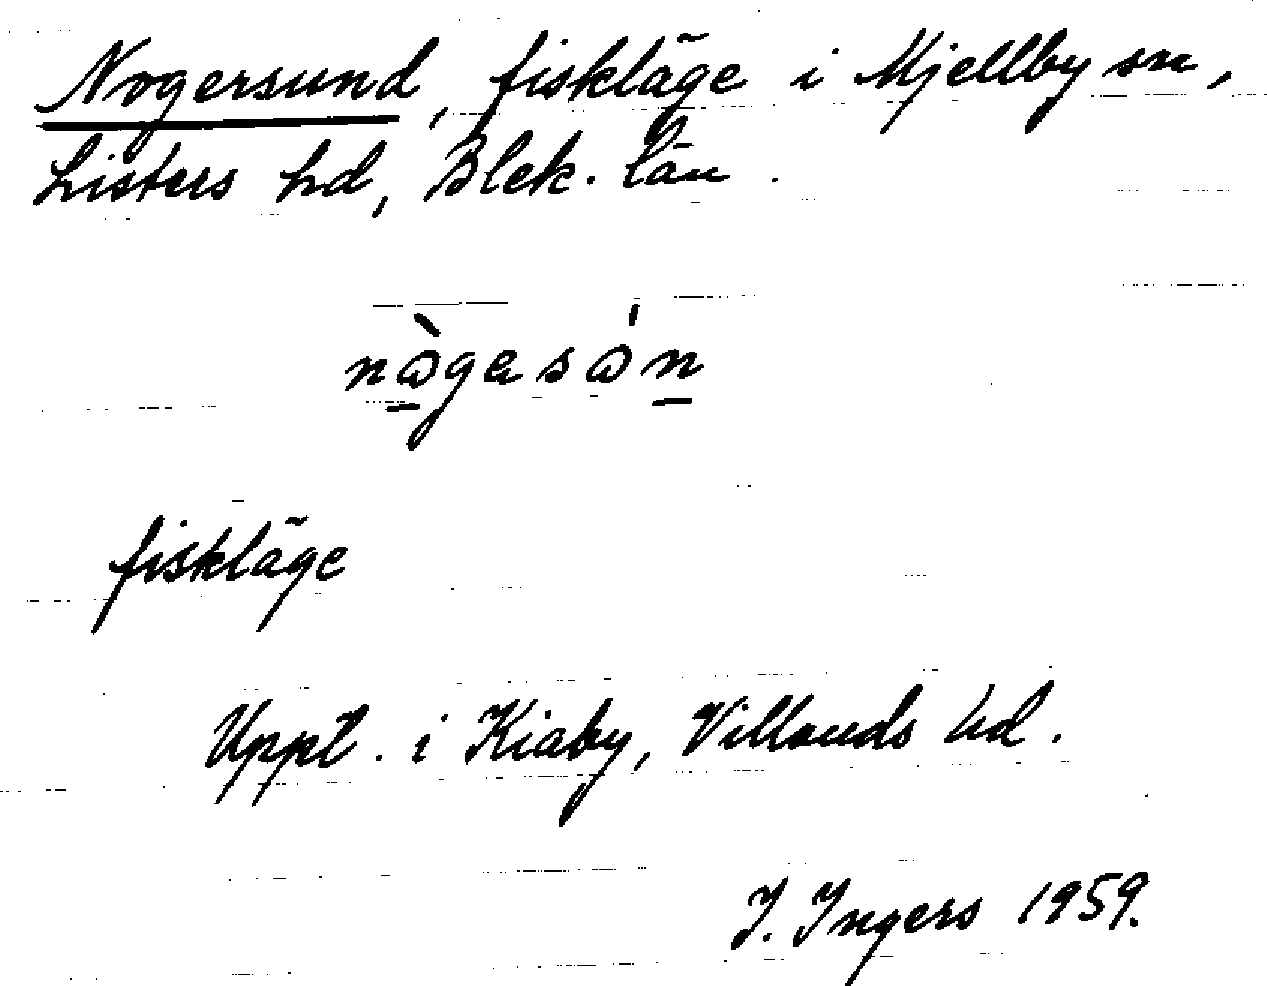 Nogersund, fiskläge i Mjellby sn,
Listers hd, Blek. län.
nògesón
fiskläge
Uppt. i Kiaby, Villands hd.
I. Ingers 1959.